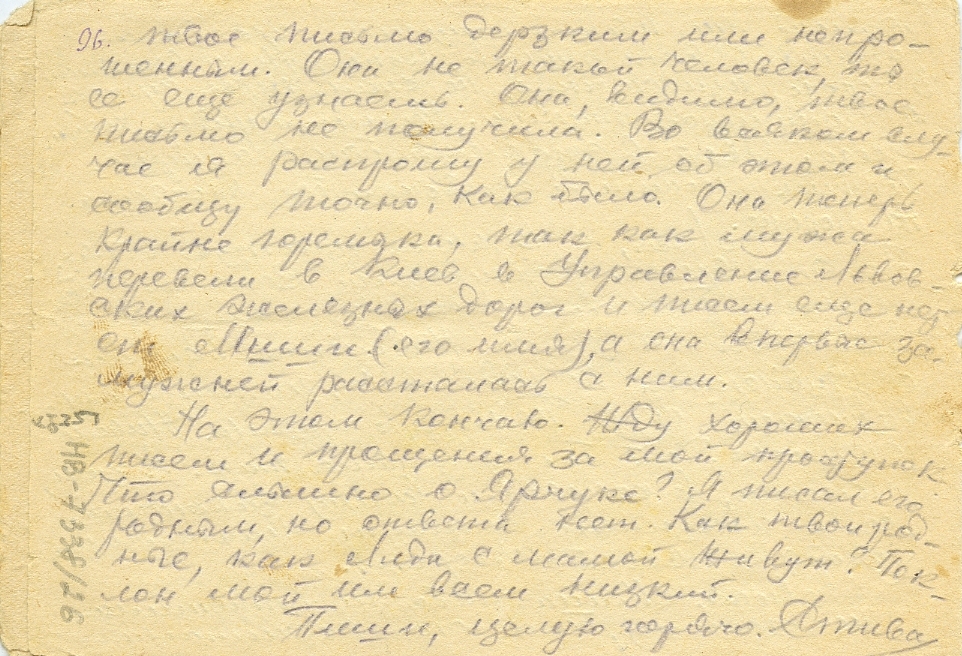 96. твое письмо дерзким или непро-
шенным. Она не такой человек, ты
ее еще узнаешь. Она, видимо, твое
письмо не получила. Во всяком слу-
чае я распрошу у ней об этом и
сообщу точно, как было. Она теперь
крайне горемыка, так как мужа
перевели в Киев в Управление Львов-
ских железных дорог и писем еще нет
от Миши (его имя), а она впервые за-
мужней рассталась с ним.
На этом кончаю. Жду хороших
писем и прощения за мой проступок
Что слышно о Ярчуке? Я писал его
родным, но ответа нет. Как твои род-
ные, как Лида с мамой живут? Пок-
лон мой им всем низкий.
Пиши, целую горячо.
НВ-7338/26